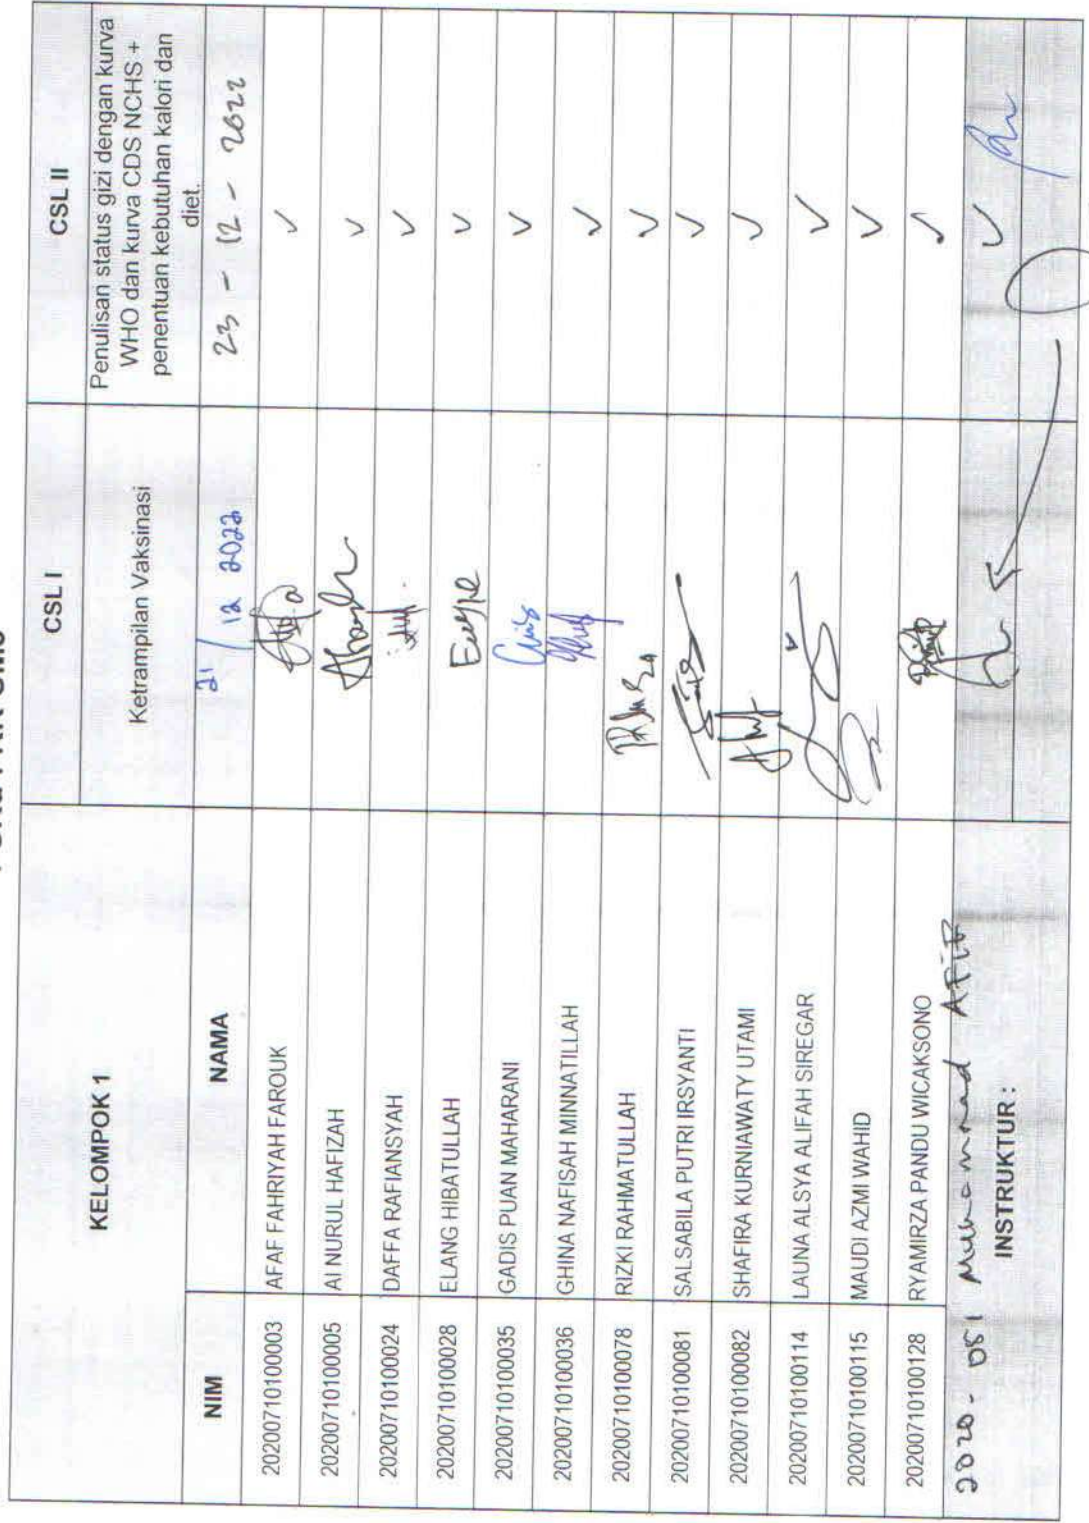 KELOMPOK 1 CSL I CSL II
Ketrampilan Vaksinasi
Penulisan status gizi dengan kurva
WHO dan kurva CDS NCHS +
penentuan kebutuhan kalori dan
diet.
NIM NAMA 21/12 2022 23 - 12 - 2022
20200710100003 AFAF FAHRIYAH FAROUK ✓
20200710100005 AI NURUL HAFIZAH ✓
20200710100024 DAFFA RAFIANSYAH ✓
20200710100028 ELANG HIBATULLAH ✓
20200710100035 GADIS PUAN MAHARANI ✓
20200710100036 GHINA NAFISAH MINNATILLAH ✓
20200710100078 RIZKI RAHMATULLAH ✓
20200710100081 SALSABILA PUTRI IRSYANTI ✓
20200710100082 SHAFIRA KURNIAWATY UTAMI ✓
20200710100114 LAUNA ALSYA ALIFAH SIREGAR ✓
20200710100115 MAUDI AZMI WAHID ✓
20200710100128 RYAMIRZA PANDU WICAKSONO ✓
2020-051 Muhammad AFIF ✓
INSTRUKTUR :